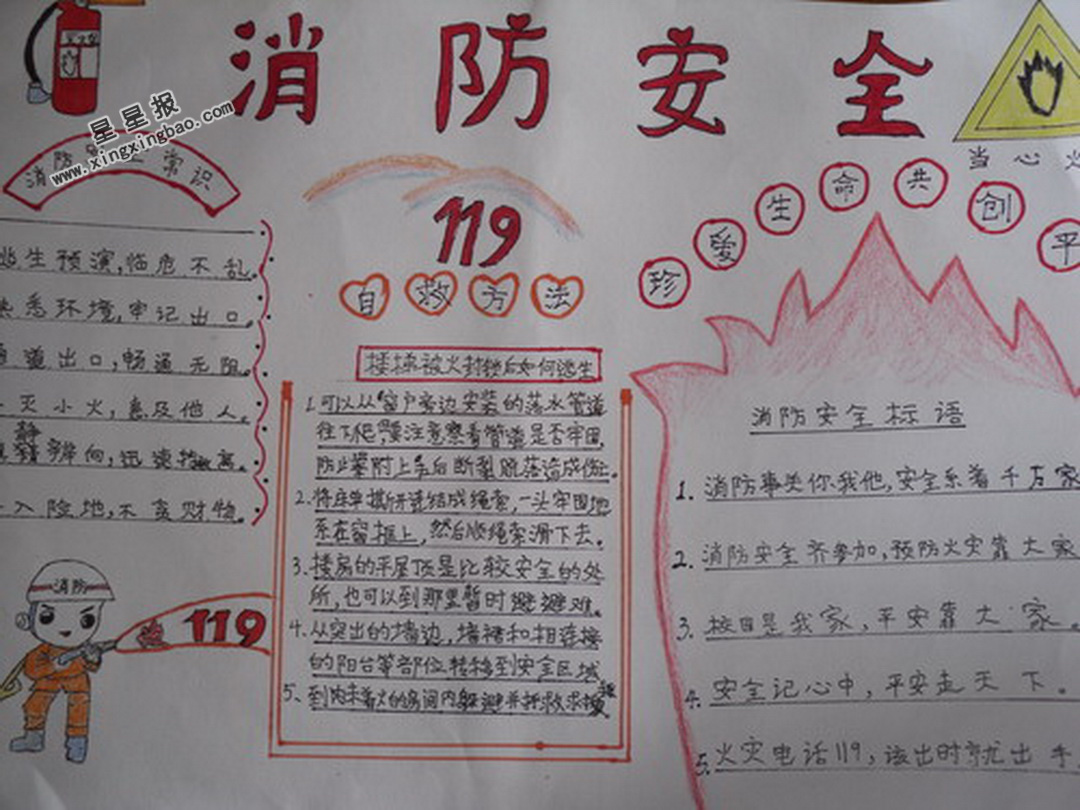 消防安全
星星报
www.xingxingbao.com
消防 常识
逃生预演,临危不乱。
悉环境,牢记出口。
通道出口,畅通无阻。
灭小火,惠及他人。
静辨向,迅速撤离。
入险地,不贪财物。
消防
119
119
自救方法
楼梯被火封锁后如何逃生
1.可以从窗户旁边安装的落水管道
往下爬,要注意察看管道是否牢固,
防止攀附上去后断裂脱落造成伤亡。
2.将床单撕开连结成绳索,一头牢固地
系在窗框上,然后顺绳索滑下去。
3.楼房的平屋顶是比较安全的处
所,也可以到那里暂时避难。
4.从突出的墙边,墙裙和相连接
的阳台等部位转移到安全区域
5、到尚未着火的房间内躲避并呼救求援
当心火
珍爱生命共创平
消防安全标语
1.消防事关你我他,安全系着千万家
2.消防安全齐参加,预防火灾靠大家
3.校园是我家,平安靠大家。
4.安全记心中,平安走天下。
5.火灾电话119,该出时就出手